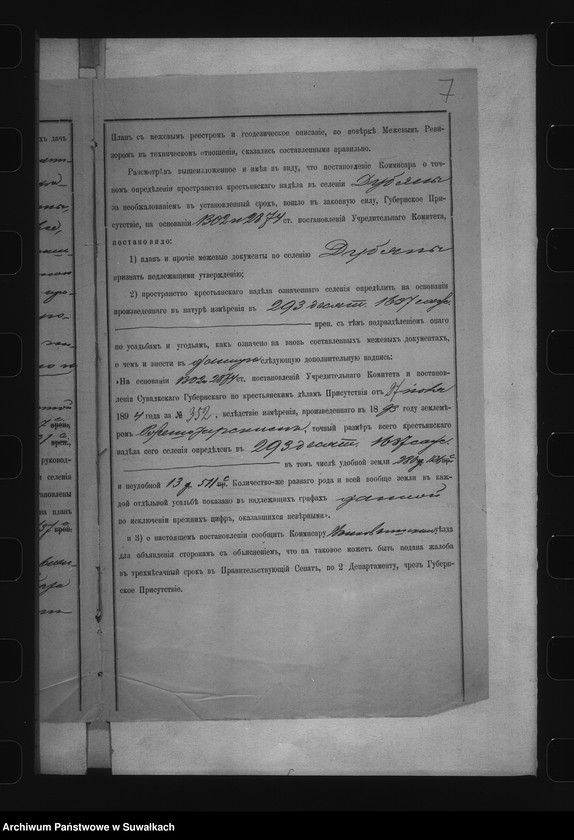 7
Планъ съ межевымъ реестромъ и геодезическое описаніе, по повѣркѣ Межевымъ Реви-
зоромъ въ техническомъ отношеніи, оказались составленными правильно.
Разсмотрѣвъ вышеизложенное и имѣя въ виду, что постановленіе Комисара о точ-
номъ опредѣленіи пространства крестьянскаго надѣла въ селеніи Дубяны
за необжалованіемъ въ установленный срокъ, вошло въ законную силу, Губернское При-
сутствіе, на основаніи 1302 и 2874 ст. постановленій Учредительнаго Комитета,
постановило:
1) планъ и прочіе межевые документы по селенію Дубяны
признать подлежащими утвержденію;
2) пространство крестьянскаго надѣла означеннаго селенія опредѣлить на основаніи
произведеннаго въ натурѣ измѣренія въ 293 десят. 1637 саж.
прен. съ тѣмъ подраздѣленіемъ онаго
по усадьбамъ и угодьямъ, какъ означено на вновь составленныхъ межевыхъ документахъ,
о чемъ и внести въ данную слѣдующую дополнительную надпись:
«На основаніи 1302 и 2874 ст. постановленій Учредительнаго Комитета и постанов-
ленія Сувалкскаго Губернскаго по крестьянскимъ дѣламъ Присутствія отъ
1894 года за № 352, вслѣдствіе измѣренія, произведеннаго въ 1893 году землемѣ-
ромъ точный размѣръ всего крестьянскаго
надѣла сего селенія опредѣленъ въ 293 десят. 1637 саж.
въ томъ числѣ удобной земли
и неудобной 13 д. 511 Количество-же разнаго рода и всей вообще земли въ каж-
дой отдѣльной усадьбѣ показано въ надлежащихъ графахъ данной
по исключеніи прежнихъ цифръ, оказавшихся невѣрными».
и 3) о настоящемъ постановленіи сообщить Комиссару уѣзда
для объявленія сторонамъ съ объясненіемъ, что на таковое можетъ быть подана жалоба
въ трехмѣсячный срокъ въ Правительствующій Сенатъ, по 2 Департаменту, чрезъ Губерн-
ское Присутствіе.
Archiwum Państwowe w Suwałkach